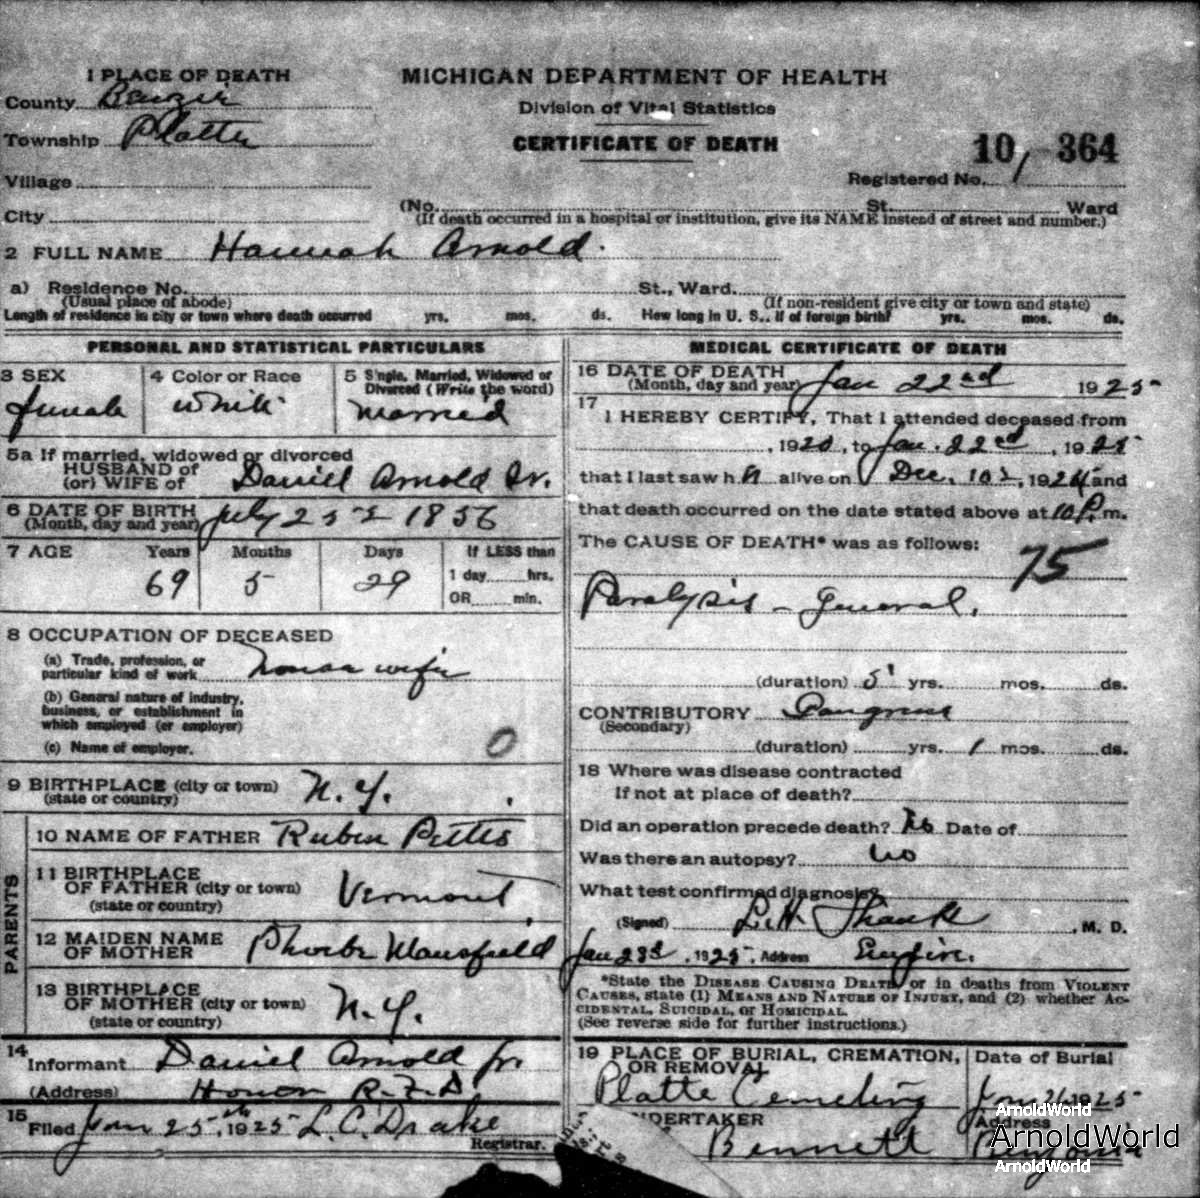 1 PLACE OF DEATH
County Benzie
Township Platte
Village
City
MICHIGAN DEPARTMENT OF HEALTH
Division of Vital Statistics
CERTIFICATE OF DEATH
10 / 364
Registered No.
(No. St. Ward
(If death occurred in a hospital or institution, give its NAME instead of street and number.)
2 FULL NAME Hannah Arnold.
a) Residence No. St., Ward.
(Usual place of abode) (If non-resident give city or town and state)
Length of residence in city or town where death occurred yrs. mos. ds. How long in U. S., if of foreign birth? yrs. mos. ds.
PERSONAL AND STATISTICAL PARTICULARS
3 SEX
female
4 Color or Race
White
5 Single, Married, Widowed or
Divorced (Write the word)
Married
5a If married, widowed or divorced
HUSBAND of
(or) WIFE of Daniel Arnold Sr.
6 DATE OF BIRTH
(Month, day and year) July 25 1856
7 AGE Years Months Days If LESS than
69 5 29 1 day hrs.
OR min.
8 OCCUPATION OF DECEASED
(a) Trade, profession, or
particular kind of work house wife
(b) General nature of industry,
business, or establishment in
which employed (or employer)
(c) Name of employer. 0
9 BIRTHPLACE (city or town) N.Y.
(state or country)
PARENTS
10 NAME OF FATHER Ruben Pettis
11 BIRTHPLACE
OF FATHER (city or town) Vermont
(state or country)
12 MAIDEN NAME
OF MOTHER Phoebe Mansfield
13 BIRTHPLACE
OF MOTHER (city or town) N.Y.
(state or country)
14
Informant Daniel Arnold Jr.
(Address) Honor R.F.D
15
Filed Jan 25th, 1925 L.C. Drake
Registrar.
MEDICAL CERTIFICATE OF DEATH
16 DATE OF DEATH
(Month, day and year) Jan 22nd 1925
17
I HEREBY CERTIFY, That I attended deceased from
, 1920, to Jan. 22nd, 1925
that I last saw h alive on Dec. 10, 1924 and
that death occurred on the date stated above at 10 P. m.
The CAUSE OF DEATH* was as follows:
75
Paralysis - General.
(duration) 5 yrs. mos. ds.
CONTRIBUTORY Gangrene
(Secondary)
(duration) yrs. 1 mos. ds.
18 Where was disease contracted
If not at place of death?
Did an operation precede death? No Date of
Was there an autopsy? No
What test confirmed diagnosis?
(Signed) , M. D.
Jan 23rd, 1925, Address Empire.
*State the DISEASE CAUSING DEATH, or in deaths from VIOLENT
CAUSES, state (1) MEANS AND NATURE OF INJURY, and (2) whether AC-
CIDENTAL, SUICIDAL, OR HOMICIDAL.
(See reverse side for further instructions.)
19 PLACE OF BURIAL, CREMATION,
OR REMOVAL
Platte Cemetery
Date of Burial
Jan 1925
NDERTAKER
Bennett
Address
ArnoldWorld
ArnoldWorld
ArnoldWorld